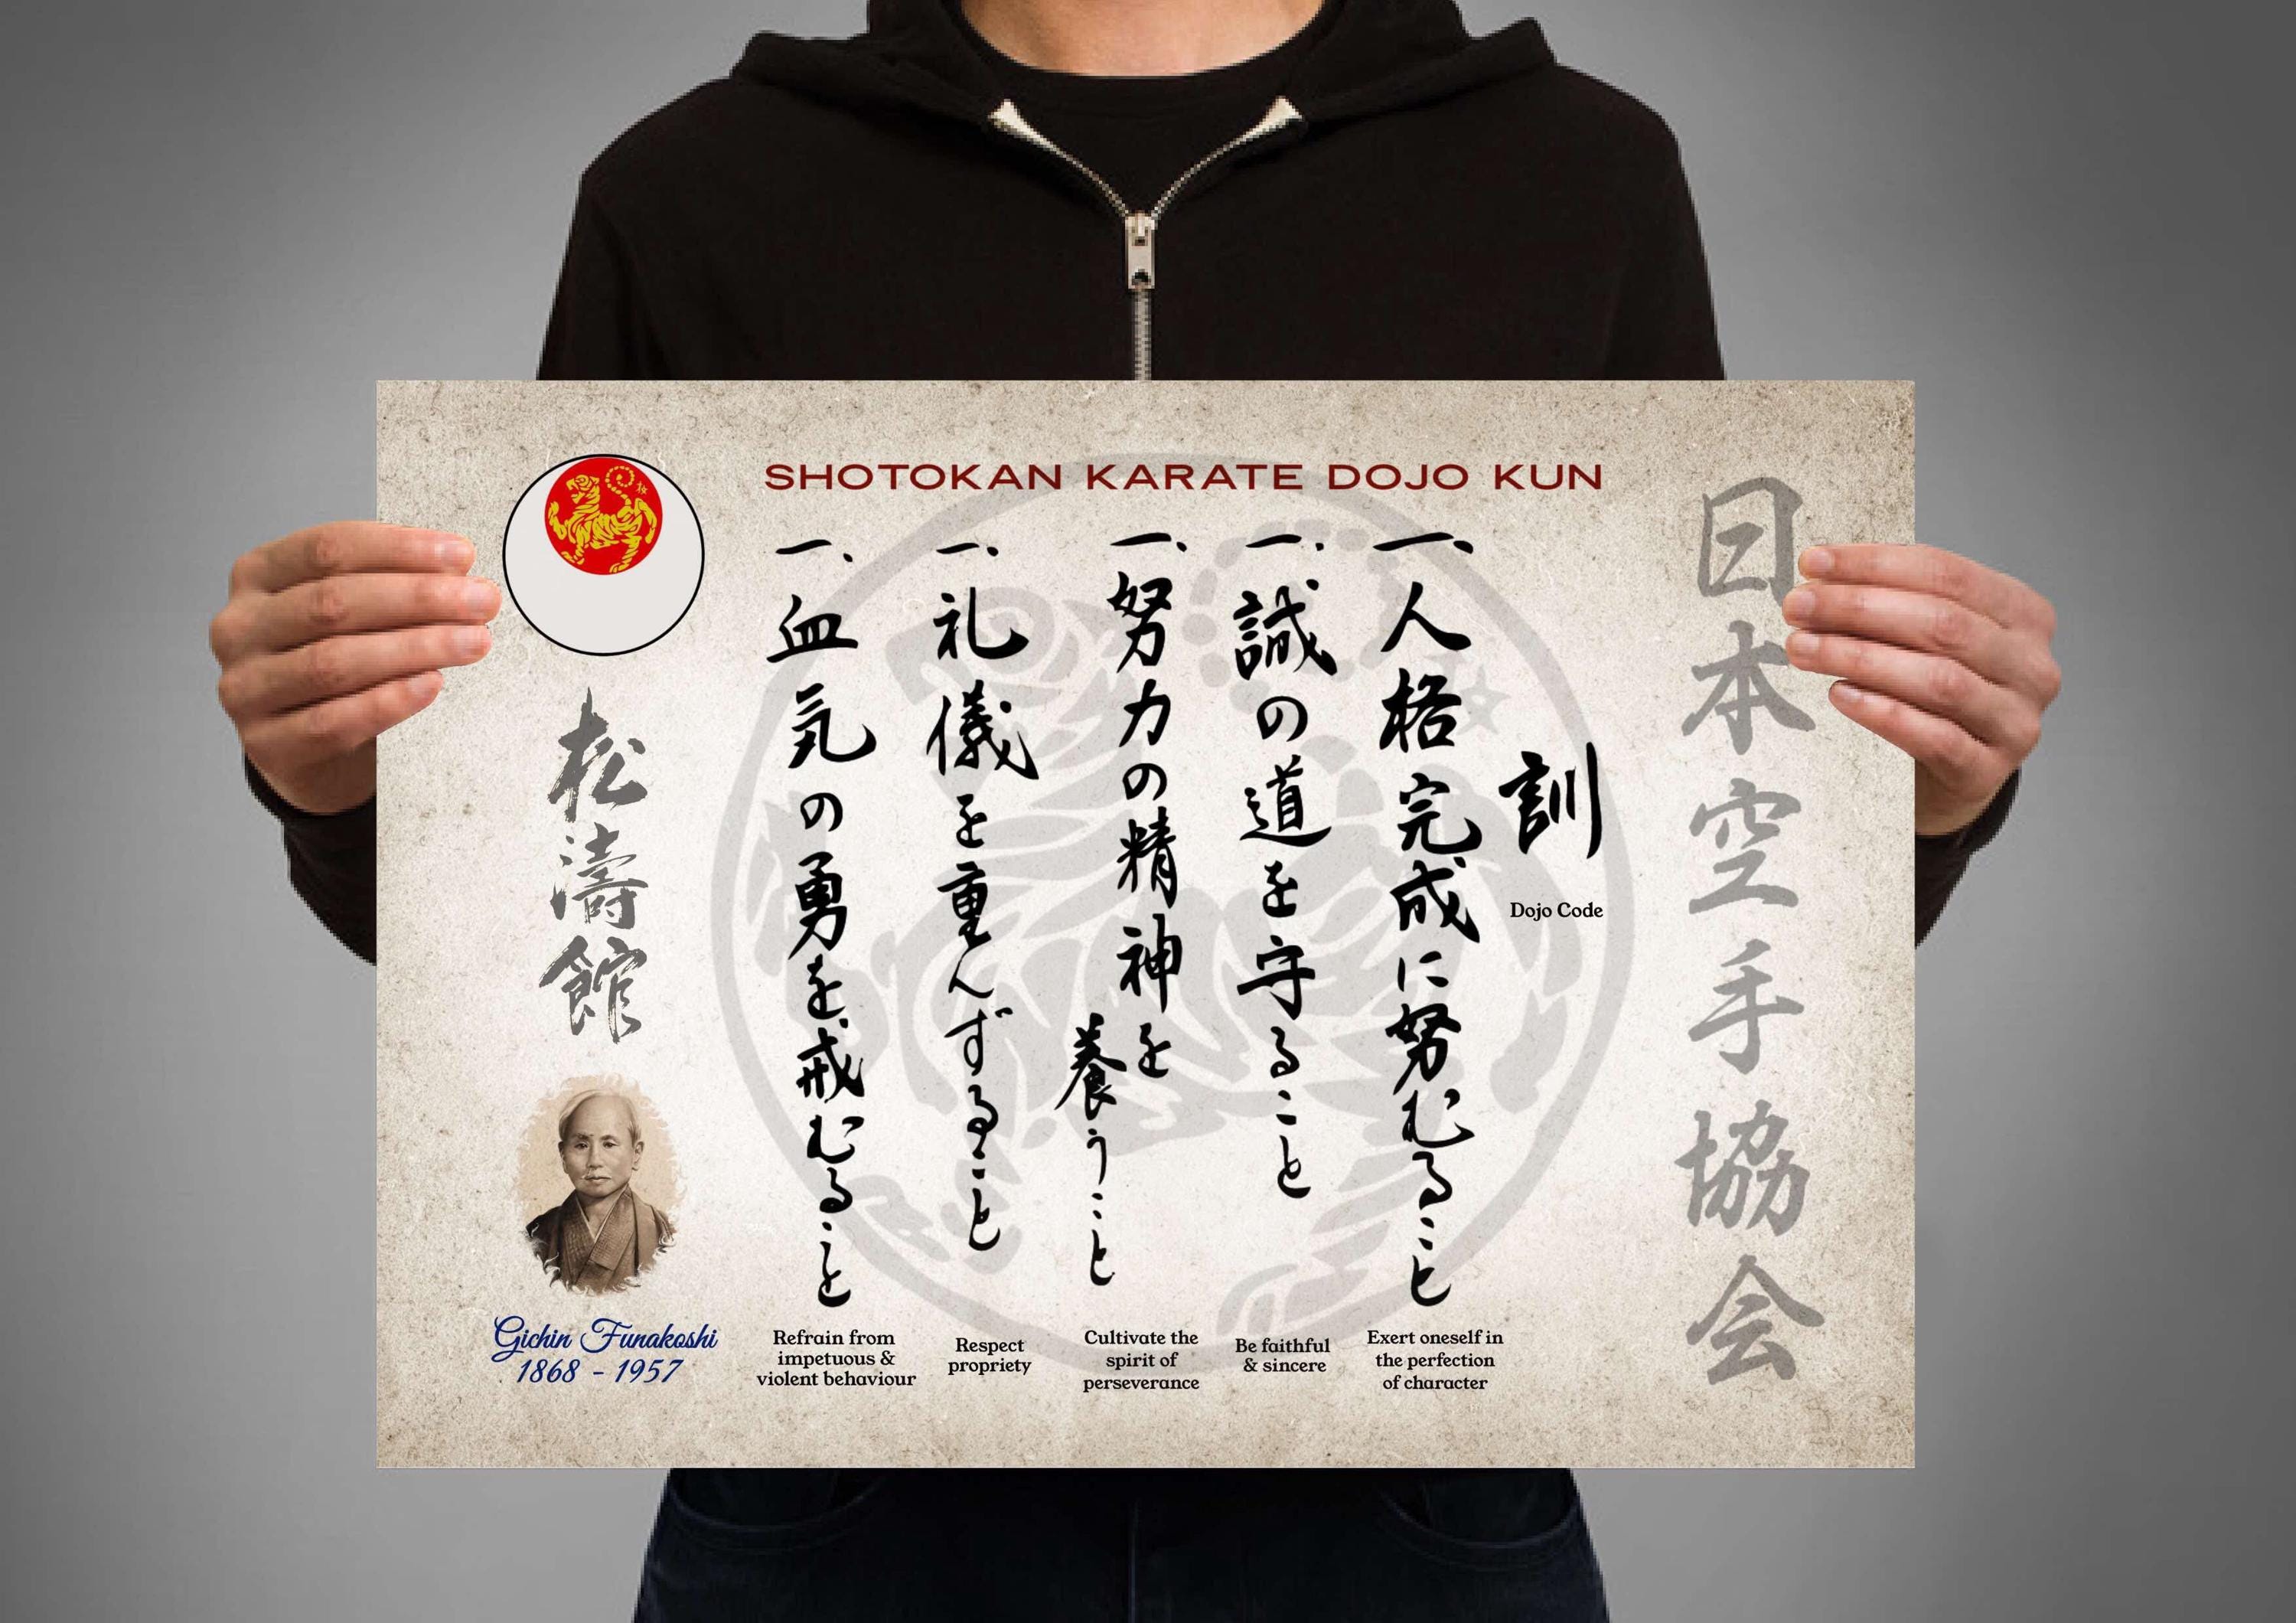 SHOTOKAN KARATE DOJO KUN
日本空手協会
訓
Dojo Code
一、人格完成に努むること
一、誠の道を守ること
一、努力の精神を
養うこと
一、礼儀を重んずること
一、血気の勇を戒むること
松濤館
Gichin Funakoshi
1868 - 1957
Refrain from
impetuous &
violent behaviour
Respect
propriety
Cultivate the
spirit of
perseverance
Be faithful
& sincere
Exert oneself in
the perfection
of character